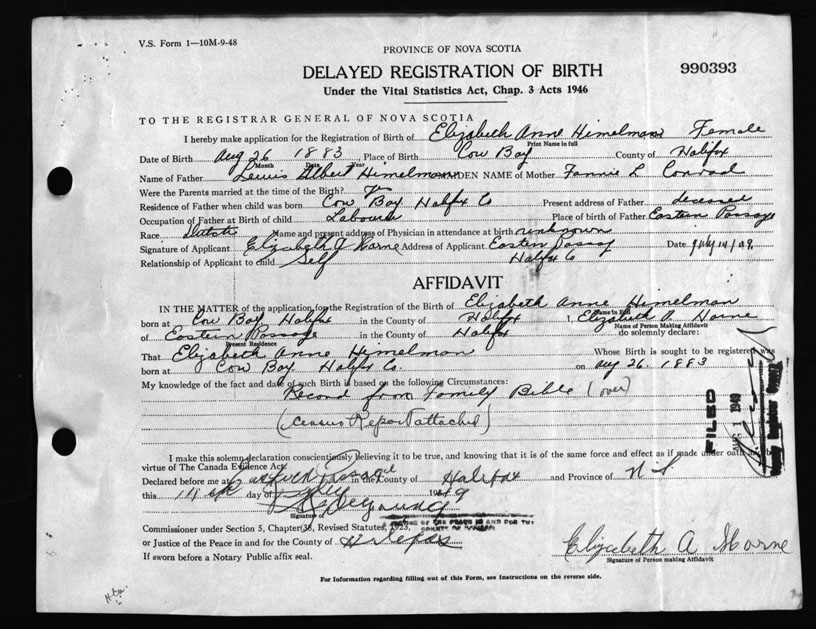 V.S. Form 1—10M-9-48
PROVINCE OF NOVA SCOTIA
DELAYED REGISTRATION OF BIRTH 990393
Under the Vital Statistics Act, Chap. 3 Acts 1946
TO THE REGISTRAR GENERAL OF NOVA SCOTIA
I hereby make application for the Registration of Birth of Elizabeth Anne Himelman Female
Print Name in full
Date of Birth Aug 26 1883 Place of Birth Cow Bay County of Halifax
Month Date Year
Name of Father Lewis Albert Himelman MAIDEN NAME of Mother Fannie L Conrad
Were the Parents married at the time of the Birth? Yes
Residence of Father when child was born Cow Bay Halifax Co Present address of Father deceased
Occupation of Father at Birth of child Labourer Place of birth of Father Eastern Passage
Race Name and present address of Physician in attendance at birth unknown
Signature of Applicant Elizabeth A Horne Address of Applicant Eastern Passag Date July 14/49
Relationship of Applicant to child Self Halifax Co
AFFIDAVIT
IN THE MATTER of the application for the Registration of the Birth of Elizabeth Anne Himelman
Name in Full
born at Cow Bay Halifax in the County of Halifax I, Elizabeth A. Horne
Name of Person Making Affidavit
of Eastern Passage in the County of Halifax do solemnly declare:
Present Residence
That Elizabeth Anne Himelman Whose Birth is sought to be registered was
born at Cow Bay Halifax Co. on Aug 26. 1883
My knowledge of the fact and date of such Birth is based on the following Circumstances:
Record from Family Bible (over)
(Census Report attached)
FILED
AUG 1 1949
Deputy Registrar General
I make this solemn declaration conscientiously believing it to be true, and knowing that it is of the same force and effect as if made under oath and by
virtue of The Canada Evidence Act.
Declared before me at Eastern Passage in the County of Halifax and Province of N S
this 14th day of July 1949
Signature of
Commissioner under Section 5, Chapter 38, Revised Statutes, 1923,
JUSTICE OF THE PEACE IN AND FOR THE
COUNTY OF HALIFAX
or Justice of the Peace in and for the County of Halifax
Elizabeth A Horne
Signature of Person making Affidavit
If sworn before a Notary Public affix seal.
For Information regarding filling out of this Form, see Instructions on the reverse side.